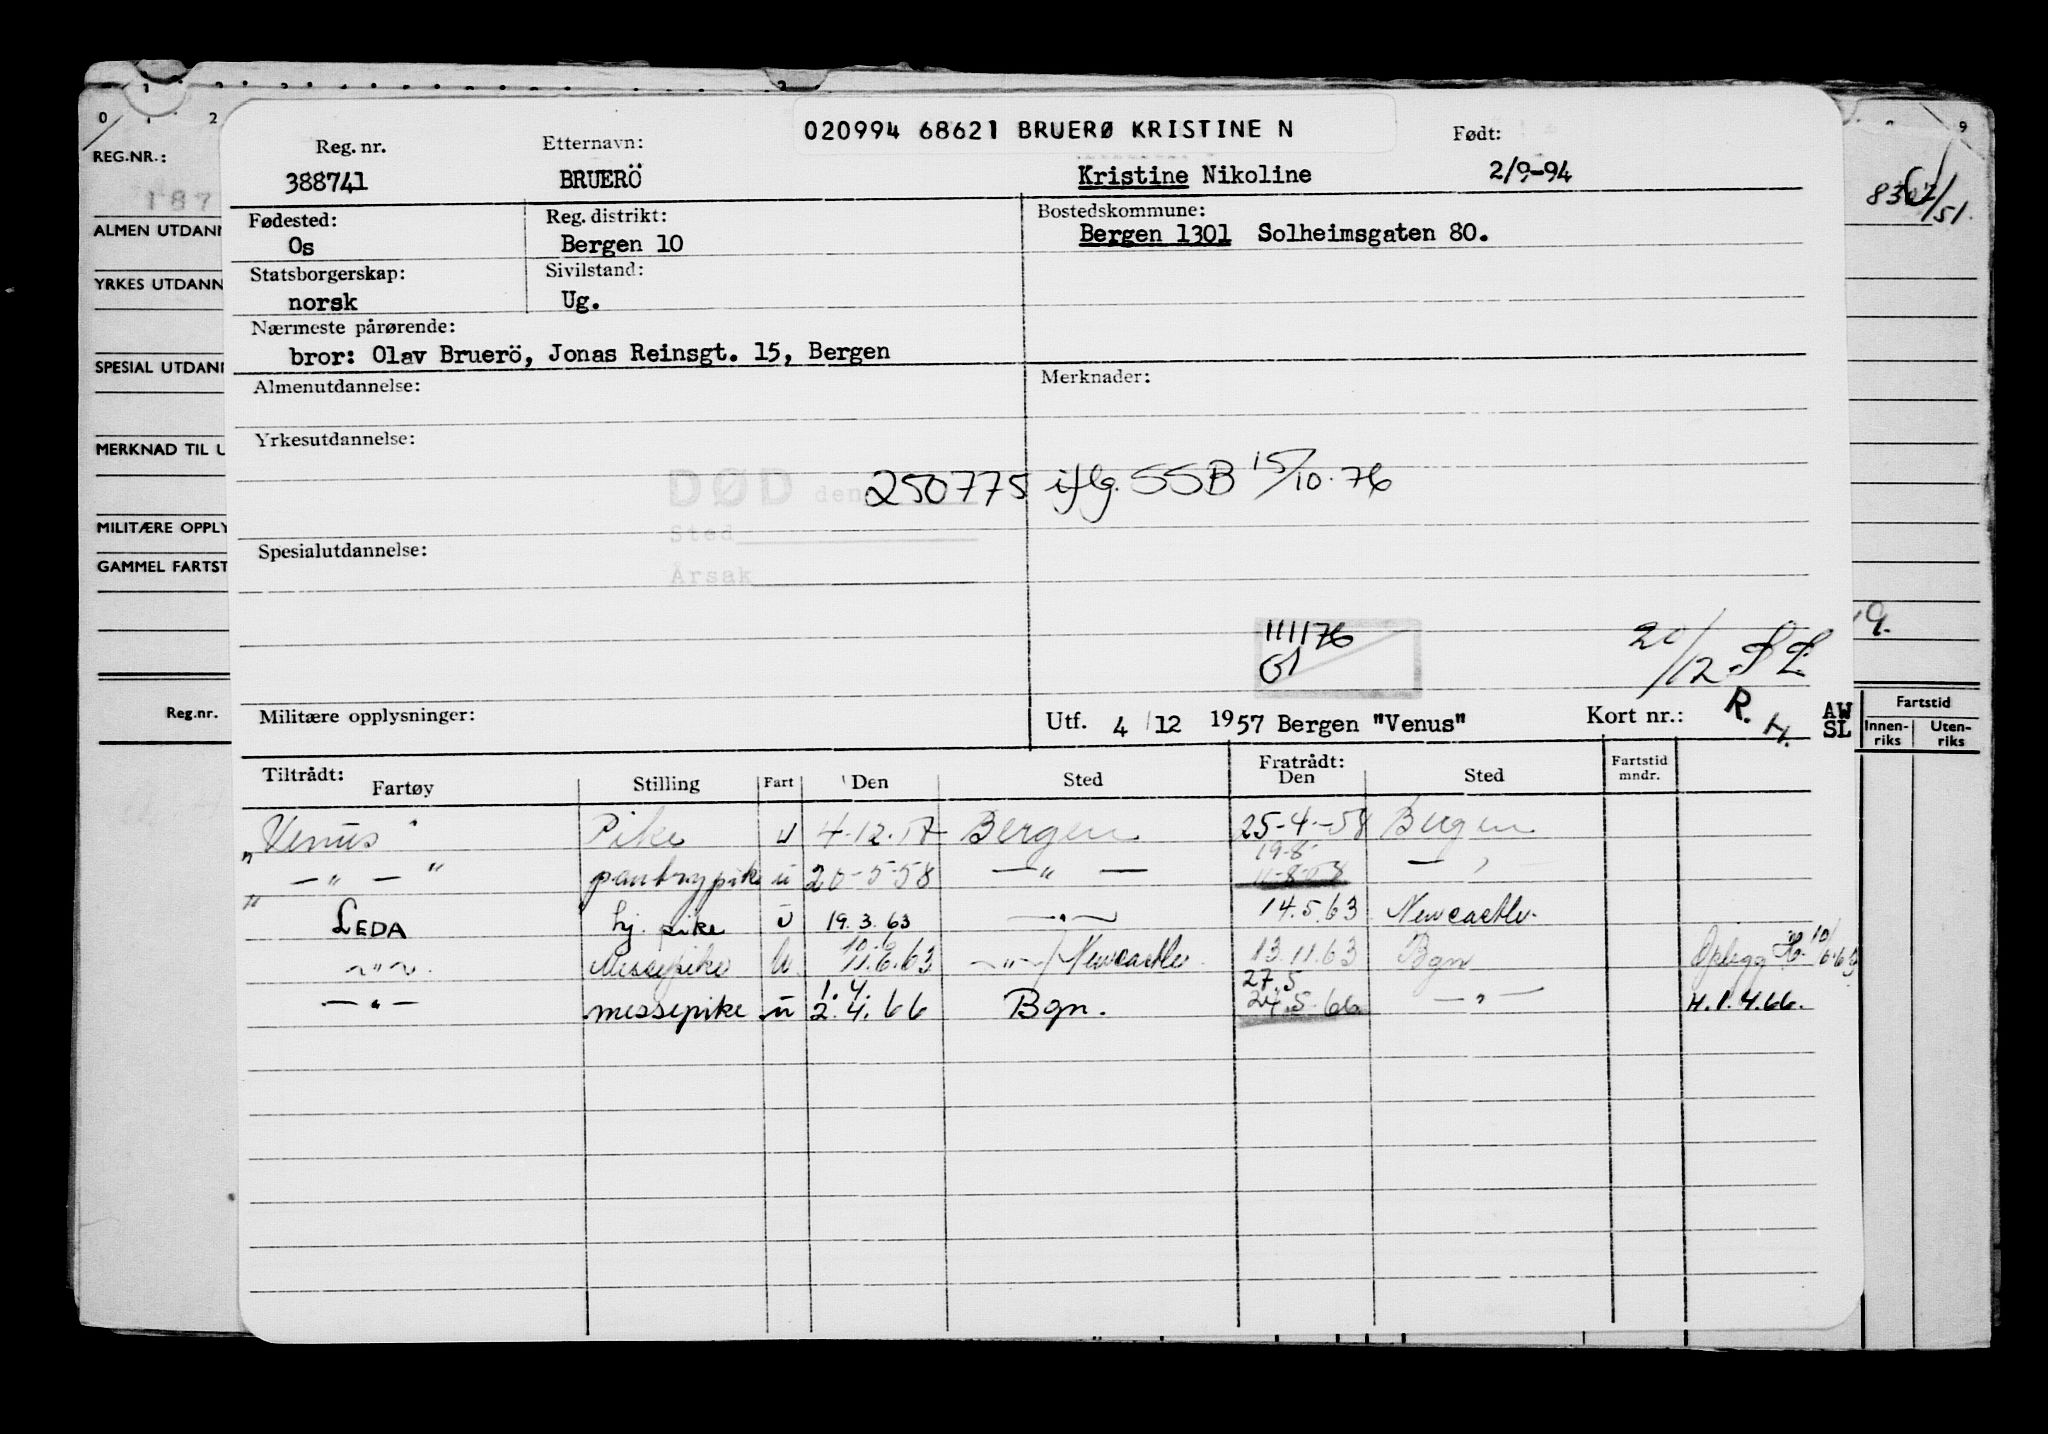 020994 68621 BRUERØ KRISTINE N
Reg. nr. Etternavn: Født:
388741 BRUERÖ Kristine Nikoline 2/9-94
Fødested: Reg. distrikt: Bostedskommune:
Os Bergen 10 Bergen 1301 Solheimsgaten 80.
Statsborgerskap: Sivilstand:
norsk Ug.
Nærmeste pårørende:
bror: Olav Bruerö, Jonas Reinsgt. 15, Bergen
Almenutdannelse: Merknader:
Yrkesutdannelse:
DØD den 250775 iflg. SSB 15/10.76
Sted
Spesialutdannelse:
Årsak
111176
20/12
Militære opplysninger: Utf. 4/12 1957 Bergen "Venus" Kort nr.: R. H.
Tiltrådt: Fratrådt:
Fartøy Stilling Fart Den Sted Den Sted Fartstid mndr.
"Venus" Pike u 4-12-57 Bergen 25-4-58 Bergen
19-8
" — " — " pantrypike u 20-5-58 — " — 11-8-58 — " —
LEDA hj. pike u 19.3.63 — " — 14.5.63 Newcastle.
10.6
— " — Messepike u 11.6.63 — " — / Newcastle 13.11.63 Bgn Oplegg 10/6.63
1.4 27.5
— " — messepike u 2.4.66 Bgn. 24.5.66 — " — H.1.4.66.
0 1 2
REG.NR.:
187
ALMEN UTDANN
YRKES UTDANN
SPESIAL UTDAN
MERKNAD TIL U
MILITÆRE OPPLY
GAMMEL FARTST
Reg.nr.
9
/51.
19.
AW
SL
Fartstid
Innen-riks Uten-riks